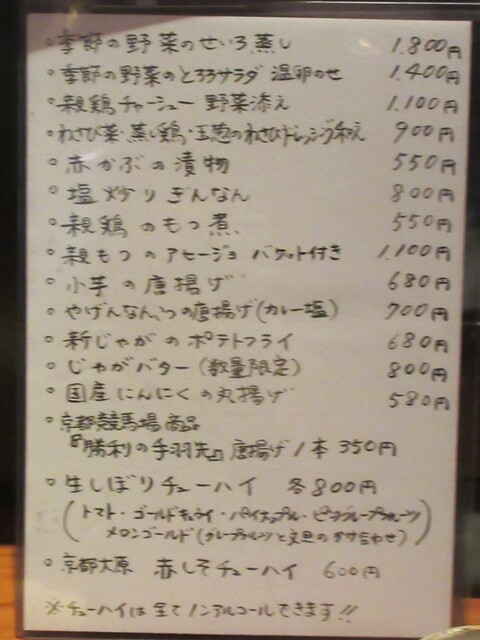 ○季節の野菜のせいろ蒸し 1.800円
○季節の野菜のとろろサラダ 温卵のせ 1.400円
○親鶏チャーシュー 野菜添え 1.100円
○わさび菜・蒸し鶏・玉葱のわさびドレッシング和え 900円
○赤かぶの漬物 550円
○塩炒りぎんなん 800円
○親鶏のもつ煮 550円
○親もつのアヒージョ バケット付き 1.100円
○小芋の唐揚げ 680円
○やげんなんこつの唐揚げ(カレー塩) 700円
○新じゃがのポテトフライ 680円
○じゃがバター(数量限定) 800円
○国産にんにくの丸揚げ 580円
○京都競馬場商品
『勝利の手羽先』唐揚げ1本350円
○生しぼりチューハイ 各800円
(トマト・ゴールドキウイ・パイナップル・ピンクグレープフルーツ
メロンゴールド(グレープフルーツと文旦のかけ合わせ))
○京都大原 赤しそチューハイ 600円
※チューハイは全てノンアルコールできます!!